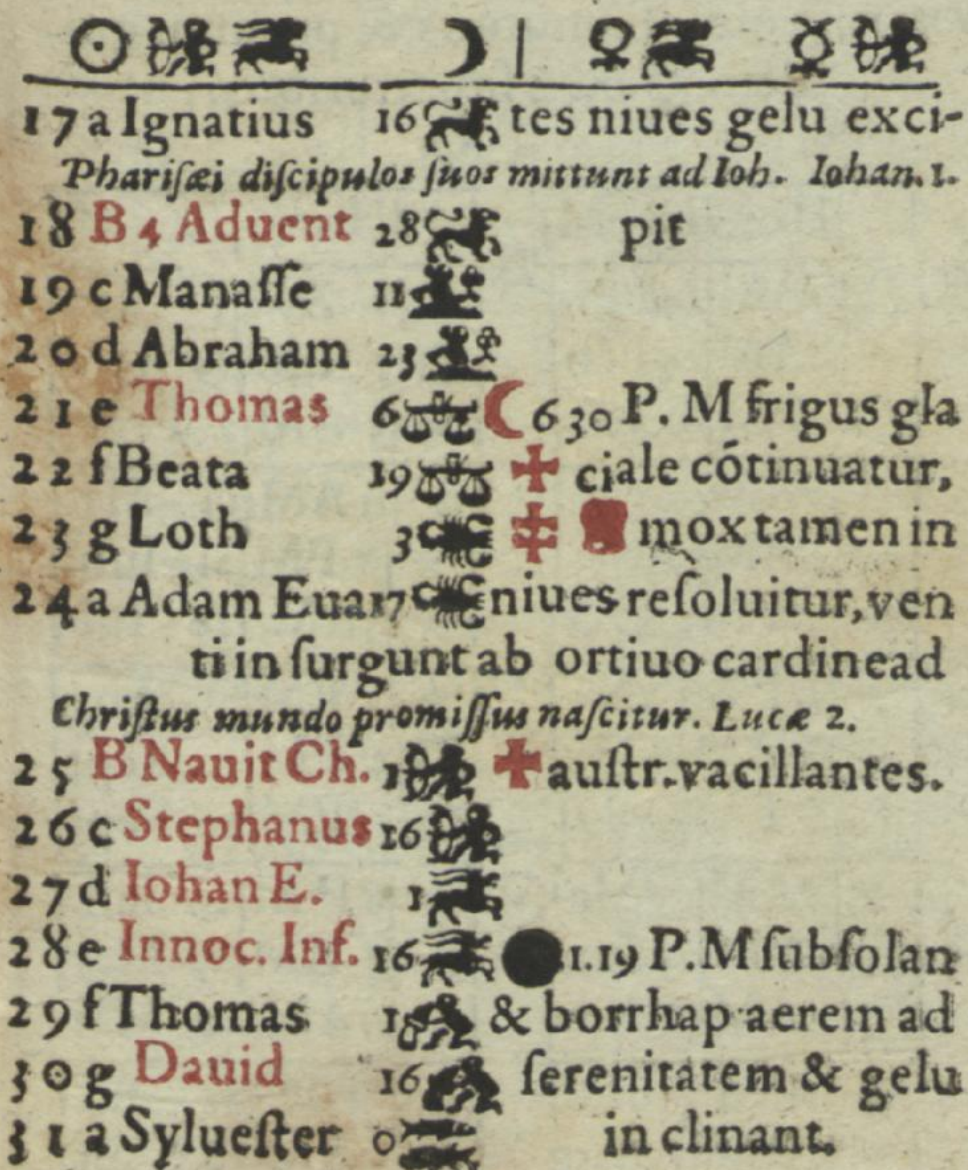 ☉ ♐ ♑ ☽ | ♀ ♑ ☿ ♐
17 a Ignatius 16 ♌ tes niues gelu exci-
Phariſæi diſcipulos ſuos mittunt ad Ioh. Iohan. 1.
18 B 4 Aduent 28 ♌ pit
19 c Manaſſe 11 ♍
20 d Abraham 23 ♍
21 e Thomas 6 ♎ ☾ 6 30 P. M frigus gla
22 f Beata 19 ♎ ✠ ciale cótinuatur,
23 g Loth 3 ♏ mox tamen in
24 a Adam Eua 17 ♏ niues reſoluitur, ven
ti in ſurgunt ab ortiuo cardine ad
Chriſtus mundo promiſſus naſcitur. Lucæ 2.
25 B Nauit Ch. 1 ♐ ✠ auſtr. vacillantes.
26 c Stephanus 16 ♐
27 d Iohan E. 1 ♑
28 e Innoc. Inf. 16 ♑ ● 1.19 P. M ſubſolan
29 f Thomas ♒ & borrhap aerem ad
30 g Dauid 16 ♒ ſerenitatem & gelu
31 a Sylueſter 0 ♓ in clinant.